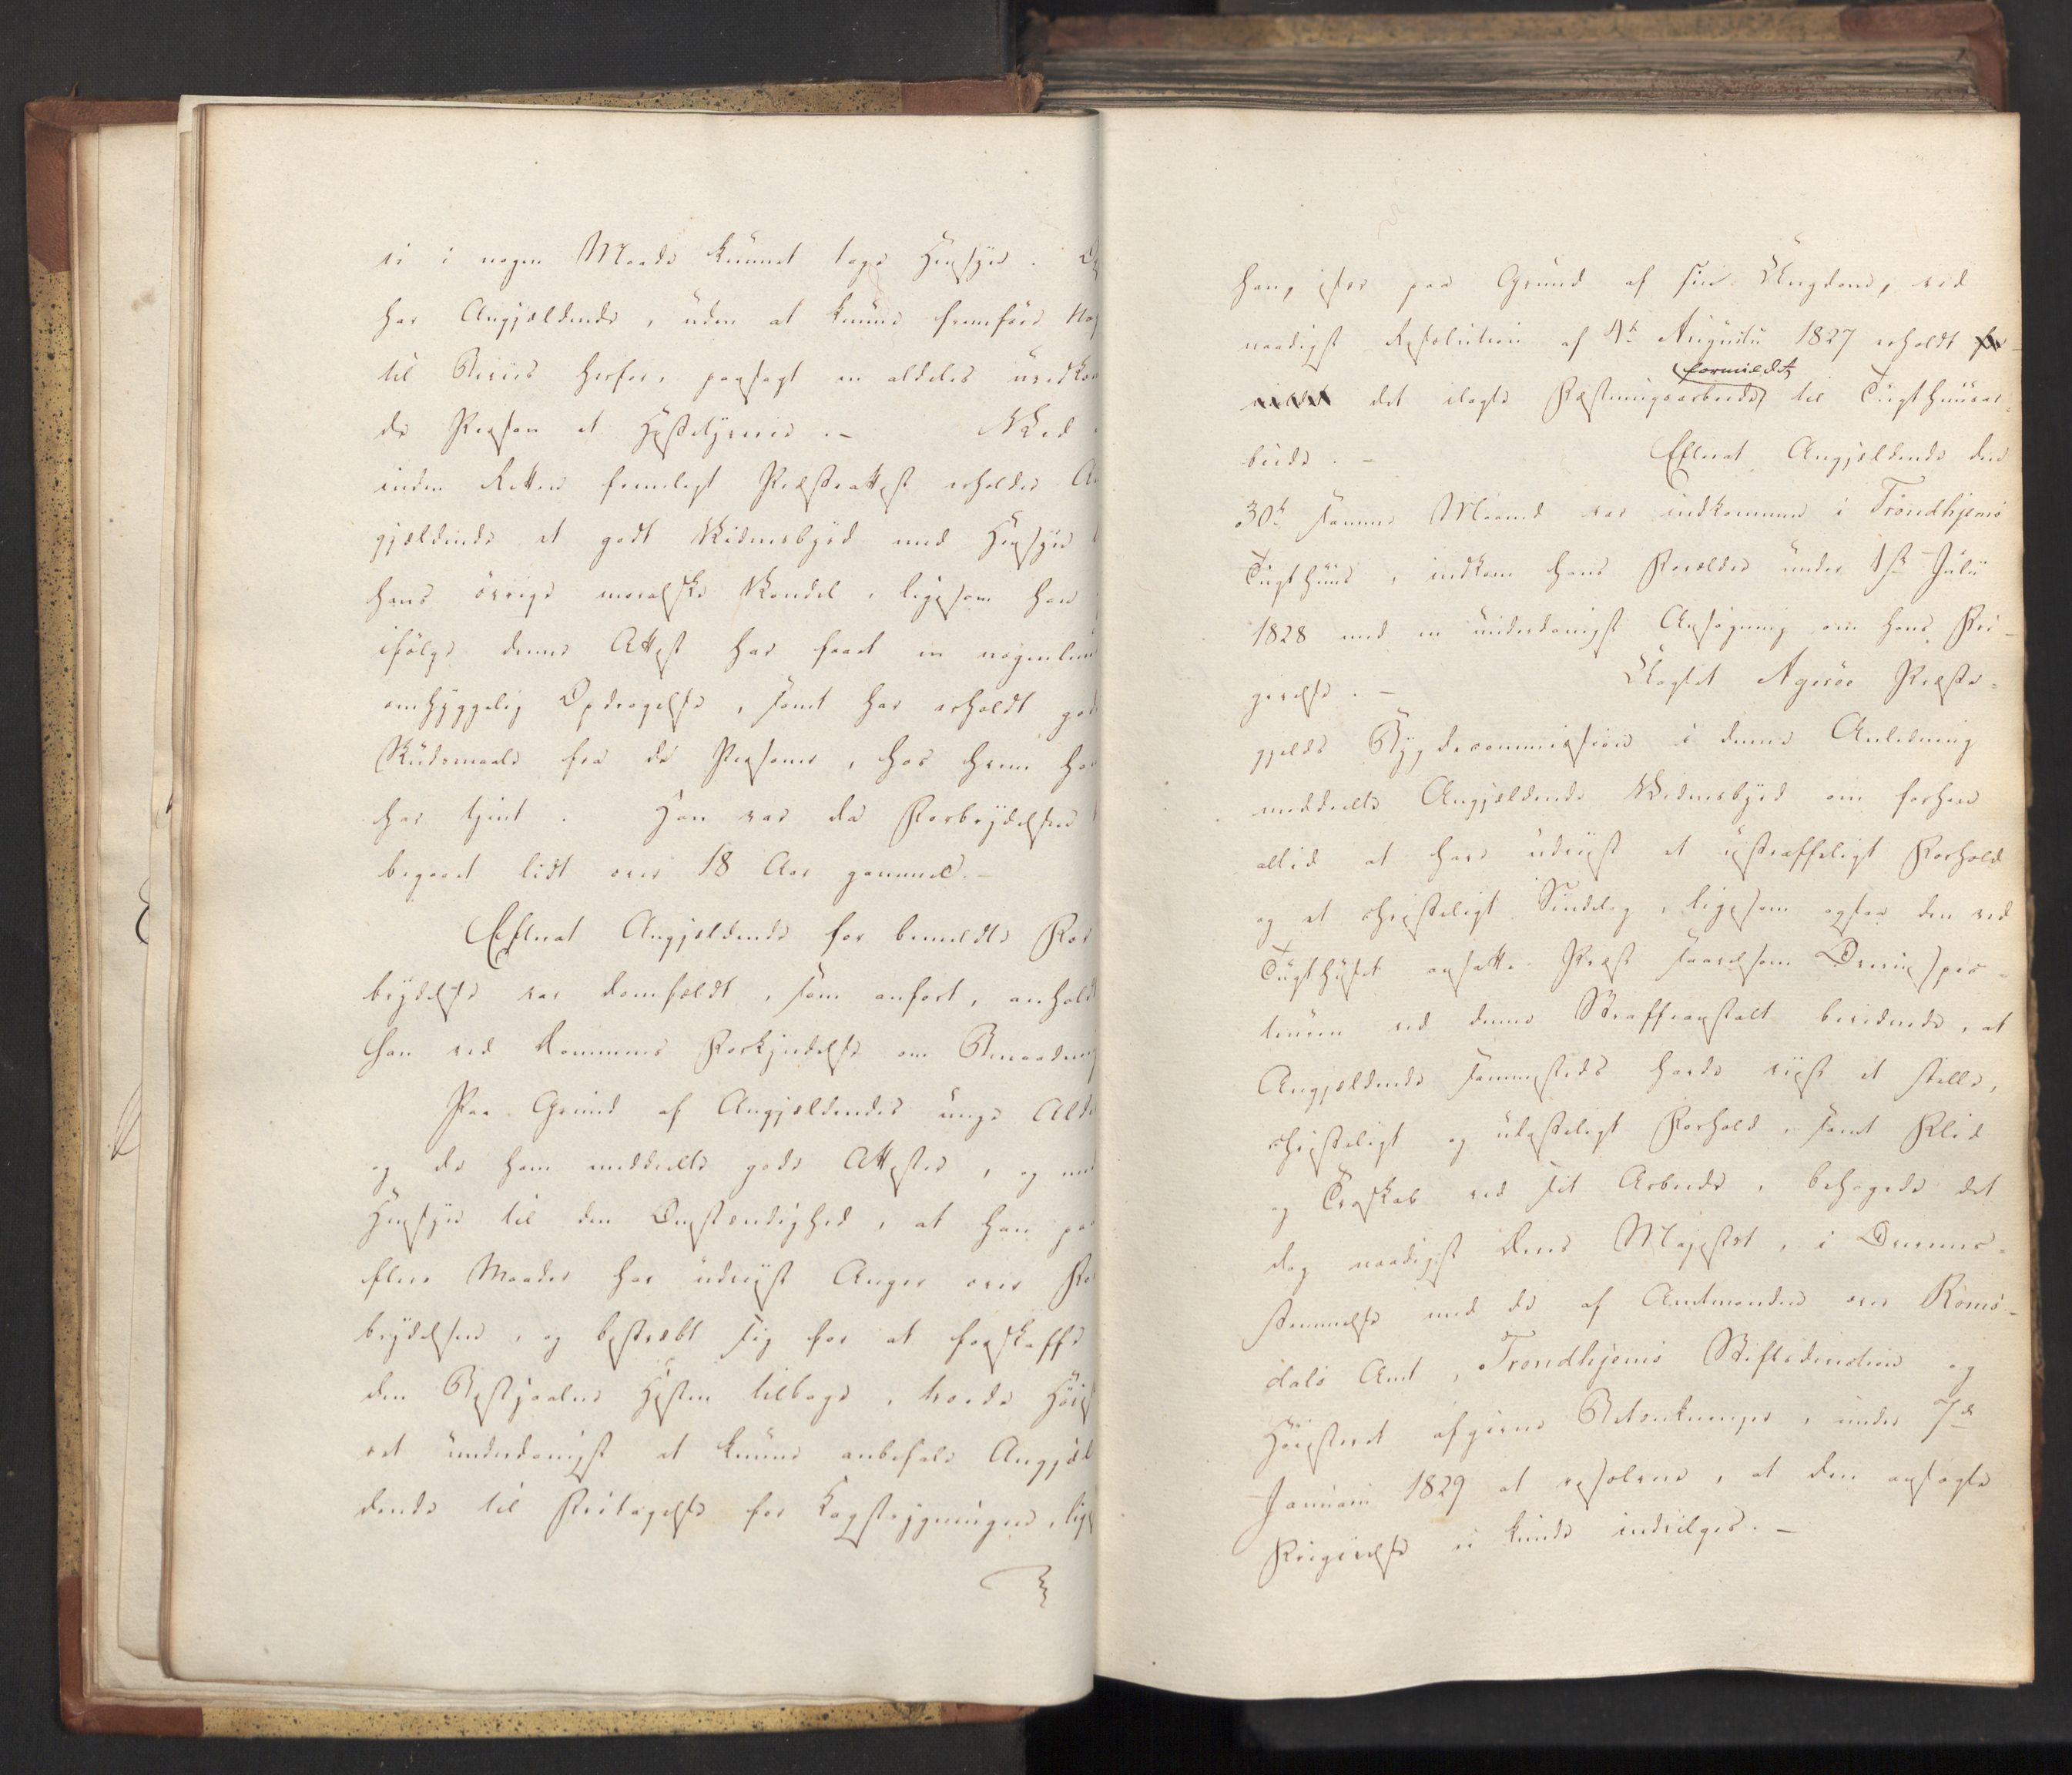 ei i nogen Maade kunnet tage Hensyn.
har Angjældende, uden at kunne fremføre
til Beviis herfor, paasagt en aldeles
de Person et Hestetyverie. – Ved
inden Retten fremlagt Præsteattest erholder An
gjældende et godt Vidnesbyrd med Hensyn
hans øvrige moralske Vandel, ligesom han
ifølge denne Attest har faaet en nogenlun
omhyggelig Opdragelse, samt har erholdt god
Skudsmaale fra de Personer, hos hvem han
har tjent. Han var da Forbrydelsen
begaaet lidt over 18 Aar gammel. –
Efterat Angjældende for bemeldte For
brydelse var domfældt, som anført, anholdt
han ved Dommens Forkyndelse om Benaadning
Paa Grund af Angjældendes unge Alder
og de ham meddeelte gode Attester, og med
Hensyn til den Omstændighed, at han paa
flere Maader har udviist Anger over For
brydelsen, og bestræbt sig for at forskaffe
den Bestjaalne Hesten tilbage, troede Høiest
ret underdanigst at kunne anbefale Angjæl
dende til Fritagelse for Kagstrygningen, lige
han, især paa Grund af sin Ungdom, ved
naadigst Resolution af 4de Augusti 1827 erholdt
det ilagte Fæstningsarbeide formildet til Tugthuusar-
beide. – Efterat Angjældende den
30te samme Maaned var indkommen i Trondhjems
Tugthuus, indkom hans Forældre under 1ste Julii
1828 med en underdanigst Ansøgning om hans Fri-
givelse. – Uagtet Agerøe Præste-
gjelds Bygdecommission i denne Anledning
meddeelte Angjældende Vidnesbyrd om forhen
altid at have udviist et ustraffeligt Forhold
og et christeligt Sindelag, ligesom ogsaa den ved
Tugthuset ansatte Præst saavelsom Oeconomie Inspec-
teuren ved denne Straffeanstalt bevidnede, at
Angjældende sammesteds havde viist et stille,
christeligt og ulasteligt Forhold, samt Flid
og Troskab ved sit Arbeide, behagede det
dog naadigst Deres Majestæt, i Overeens-
stemmelse med de af Amtmanden over Roms-
dals Amt, Trondhjems Stiftsdirection og
Høiesteret afgivne Betænkninger, under 7de
Januarii 1829 at resolvere, at den ansøgte
Frigivelse ei kunde indvilges. –